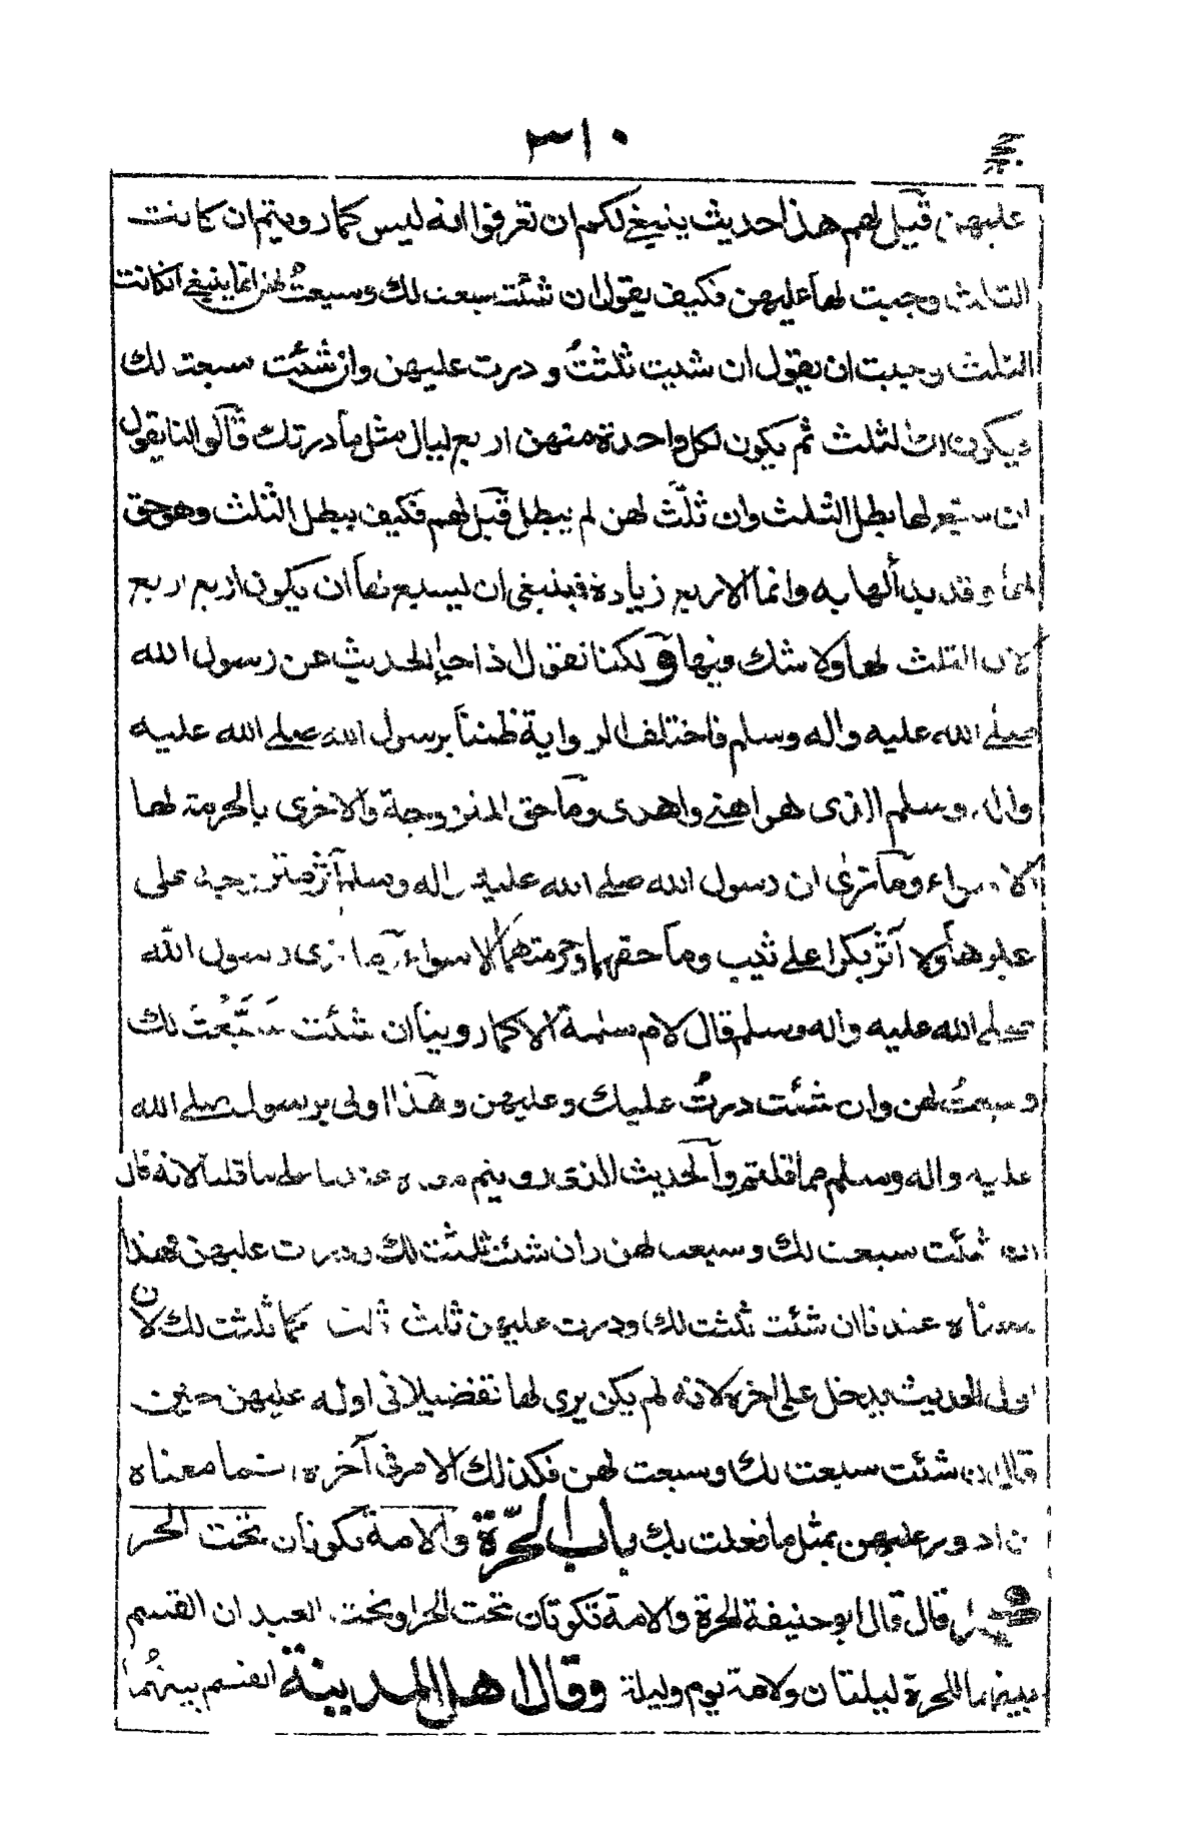 ٣١٠
عليهن قيل لهم هذا حديث ينبغي لكم ان تعرفوا انه ليس كما رويتم ان كانت
الثلث وجبت لها عليهن فكيف يقول ان شئت سبعت لك وسبعت لهن انما ينبغي انكانت
الثلث وجبت ان يقول ان شئت ثلثت ودرت عليهن وان شئت سبعت لك
ويكون الثلث ثم يكون لكل واحدة منهن اربع ليال مثل ما درتك قالوا انا نقول
ان سبعو لها بطل الثلث وان ثلث لهن لم يبطل قيل لهم فكيف يبطل الثلث وهو حق
لها وقد بدألها به وانما الاربع زيادة فينبغي ان ان يكون اربع اربع
لان الثلث لها ولا شك فيها ولكنا نقول اذا جاء الحديث عن رسول الله
صلے الله عليه واله وسلم فاختلف الرواية ظننا برسول الله صلے الله عليه
واله وسلم الذى هو اهنى واهدى وما حق المتزوجة والاخرى بالحرمة لها
الا سواء وما نرى ان رسول الله صلے الله عليه واله وسلم آثر متزوجة على
غيرها ولا آثر بكرا على ثيب وما حقهما وحرمتهما الا سواء وما نرى رسول الله
صلے الله عليه واله وسلم قال لام سلمة الا كما روينا ان شئت سَبَّعْتُ لك
وسبعتُ لهن وان شئت درتُ عليك وعليهن وهذا اولى برسول صلے الله
عليه واله وسلم مما قلتم والحديث الذى رويتم معناه عندنا على ما قلنا لانه قال
ان شئت سبعت لك وسبعت لهن وان شئت ثلثت لك ودرت عليهن فهذا
معناه عندنا ان شئت ثلثت لك ودرت عليهن ثلث ثلث كما ثلثت لك لان
اول الحديث يدخل على اخره لانه لم يكن يرى لها تفضيلا فى اوله عليهن حين
قال ان شئت سبعت لك وسبعت لهن فكذلك الامر فى آخره انما معناه
ان ادور عليهن بمثل ما فعلت بك باب الحرّة والامة تكونان تحت الحر
محمد قال قال ابو حنيفة الحرة والامة تكونان تحت الحر او تحت العبد ان القسم
بينهما للحرة ليلتان ولامة يوم وليلة وقال اهل المدينة القسم بينهُما